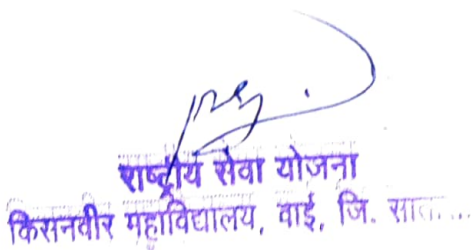 राष्ट्रीय सेवा योजना
किसनवीर महाविद्यालय, वाई, जि. सात....